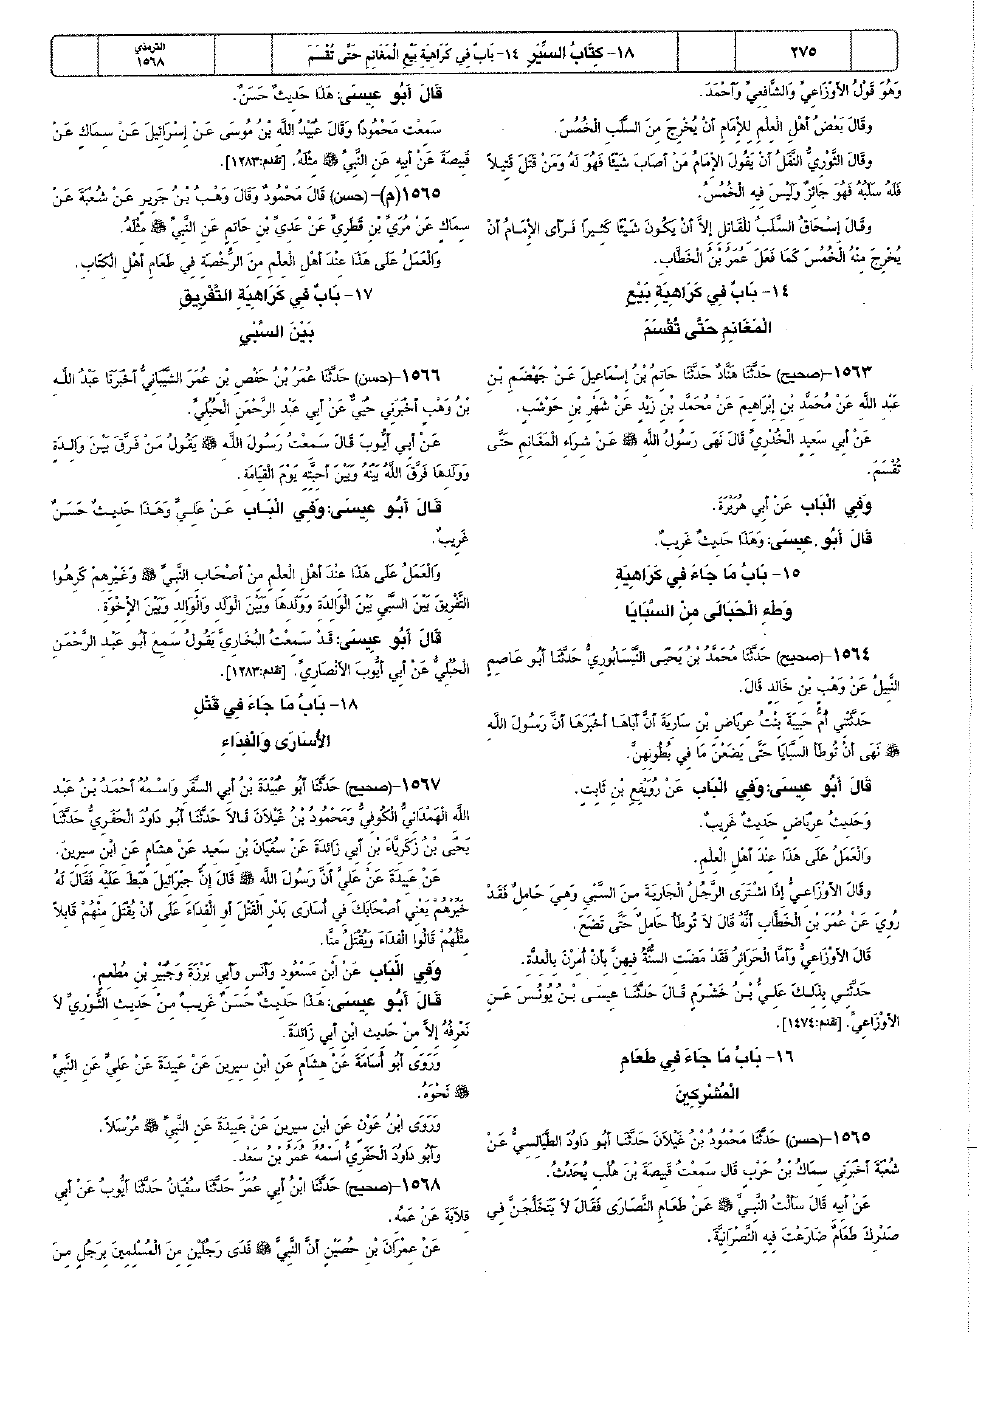 ٢٧٥
١٨- كِتَابُ السِّيَرِ ١٤- بَابٌ فِي كَرَاهِيَةِ بَيْعِ الْمَغَانِمِ حَتَّى تُقْسَمَ
الترمذي
١٥٦٨
وَهُوَ قَوْلُ الأَوْزَاعِيِّ وَالشَّافِعِيِّ وَأَحْمَدَ.
وقَالَ بَعْضُ أَهْلِ الْعِلْمِ لِلْإِمَامِ أَنْ يُخْرِجَ مِنَ السَّلَبِ الْخُمُسَ.
وقَالَ الثَّوْرِيُّ النَّفَلُ أَنْ يَقُولَ الإِمَامُ مَنْ أَصَابَ شَيْئًا فَهُوَ لَهُ وَمَنْ قَتَلَ قَتِيلاً
فَلَهُ سَلَبُهُ فَهُوَ جَائِزٌ وَلَيْسَ فِيهِ الْخُمُسُ.
وقَالَ إِسْحَاقُ السَّلَبُ لِلْقَاتِلِ إِلاَّ أَنْ يَكُونَ شَيْئًا كَثِيرًا فَرَأَى الإِمَامُ أَنْ
يُخْرِجَ مِنْهُ الْخُمُسَ كَمَا فَعَلَ عُمَرُ بْنُ الْخَطَّابِ.
١٤- بَابٌ فِي كَرَاهِيَةِ بَيْعِ
الْمَغَانِمِ حَتَّى تُقْسَمَ
١٥٦٣-(صحيح) حَدَّثَنَا هَنَّادٌ حَدَّثَنَا حَاتِمُ بْنُ إِسْمَاعِيلَ عَنْ جَهْضَمِ بْنِ
عَبْدِ اللهِ عَنْ مُحَمَّدِ بْنِ إِبْرَاهِيمَ عَنْ مُحَمَّدِ بْنِ زَيْدٍ عَنْ شَهْرِ بْنِ حَوْشَبٍ.
عَنْ أَبِي سَعِيدٍ الْخُدْرِيِّ قَالَ نَهَى رَسُولُ اللَّهِ ﷺ عَنْ شِرَاءِ الْمَغَانِمِ حَتَّى
تُقْسَمَ.
وَفِي الْبَابِ عَنْ أَبِي هُرَيْرَةَ.
قَالَ أَبُو عِيسَى: وَهَذَا حَدِيثٌ غَرِيبٌ.
١٥- بَابُ مَا جَاءَ فِي كَرَاهِيَةِ
وَطْءِ الْحَبَالَى مِنَ السَّبَايَا
١٥٦٤-(صحيح) حَدَّثَنَا مُحَمَّدُ بْنُ يَحْيَى النَّيْسَابُورِيُّ حَدَّثَنَا أَبُو عَاصِمٍ
النَّبِيلُ عَنْ وَهْبِ بْنِ خَالِدٍ قَالَ.
حَدَّثَتْنِي أُمُّ حَبِيبَةَ بِنْتُ عِرْبَاضِ بْنِ سَارِيَةَ أَنَّ أَبَاهَا أَخْبَرَهَا أَنَّ رَسُولَ اللهِ
ﷺ نَهَى أَنْ تُوطَأَ السَّبَايَا حَتَّى يَضَعْنَ مَا فِي بُطُونِهِنَّ.
قَالَ أَبُو عِيسَى: وَفِي الْبَابِ عَنْ رُوَيْفِعِ بْنِ ثَابِتٍ.
وَحَدِيثُ عِرْبَاضٍ حَدِيثٌ غَرِيبٌ.
وَالْعَمَلُ عَلَى هَذَا عِنْدَ أَهْلِ الْعِلْمِ.
وقَالَ الأَوْزَاعِيُّ إِذَا اشْتَرَى الرَّجُلُ الْجَارِيَةَ مِنَ السَّبْيِ وَهِيَ حَامِلٌ فَقَدْ
رُوِيَ عَنْ عُمَرَ بْنِ الْخَطَّابِ أَنَّهُ قَالَ لاَ تُوطَأُ حَامِلٌ حَتَّى تَضَعَ.
قَالَ الأَوْزَاعِيُّ وَأَمَّا الْحَرَائِرُ فَقَدْ مَضَتِ السُّنَّةُ فِيهِنَّ بِأَنْ أُمِرْنَ بِالْعِدَّةِ.
حَدَّثَنِي بِذَلِكَ عَلِيُّ بْنُ خَشْرَمٍ قَالَ حَدَّثَنَا عِيسَى بْنُ يُونُسَ عَنِ
الأَوْزَاعِيِّ. [تقدم: ١٤٧٤].
١٦- بَابُ مَا جَاءَ فِي طَعَامِ
الْمُشْرِكِينَ
١٥٦٥-(حسن) حَدَّثَنَا مَحْمُودُ بْنُ غَيْلاَنَ حَدَّثَنَا أَبُو دَاوُدَ الطَّيَالِسِيُّ عَنْ
شُعْبَةَ أَخْبَرَنِي سِمَاكُ بْنُ حَرْبٍ قَالَ سَمِعْتُ قَبِيصَةَ بْنَ هُلْبٍ يُحَدِّثُ.
عَنْ أَبِيهِ قَالَ سَأَلْتُ النَّبِيَّ ﷺ عَنْ طَعَامِ النَّصَارَى فَقَالَ لاَ يَتَخَلَّجَنَّ فِي
صَدْرِكَ طَعَامٌ ضَارَعْتَ فِيهِ النَّصْرَانِيَّةَ.
قَالَ أَبُو عِيسَى: هَذَا حَدِيثٌ حَسَنٌ.
سَمِعْت مَحْمُودًا وَقَالَ عُبَيْدُ اللهِ بْنُ مُوسَى عَنْ إِسْرَائِيلَ عَنْ سِمَاكٍ عَنْ
قَبِيصَةَ عَنْ أَبِيهِ عَنِ النَّبِيِّ ﷺ مِثْلَهُ. [تقدم: ١٢٨٣].
١٥٦٥(م)-(حسن) قَالَ مَحْمُودٌ وَقَالَ وَهْبُ بْنُ جَرِيرٍ عَنْ شُعْبَةَ عَنْ
سِمَاكٍ عَنْ مُرَيِّ بْنِ قَطَرِيٍّ عَنْ عَدِيِّ بْنِ حَاتِمٍ عَنِ النَّبِيِّ ﷺ مِثْلَهُ.
وَالْعَمَلُ عَلَى هَذَا عِنْدَ أَهْلِ الْعِلْمِ مِنَ الرُّخْصَةِ فِي طَعَامِ أَهْلِ الْكِتَابِ.
١٧- بَابٌ فِي كَرَاهِيَةِ التَّفْرِيقِ
بَيْنَ السَّبْيِ
١٥٦٦-(حسن) حَدَّثَنَا عُمَرُ بْنُ حَفْصِ بْنِ عُمَرَ الشَّيْبَانِيُّ أَخْبَرَنَا عَبْدُ اللهِ
بْنُ وَهْبٍ أَخْبَرَنِي حُيَيٌّ عَنْ أَبِي عَبْدِ الرَّحْمَنِ الْحُبُلِيِّ.
عَنْ أَبِي أَيُّوبَ قَالَ سَمِعْتُ رَسُولَ اللهِ ﷺ يَقُولُ مَنْ فَرَّقَ بَيْنَ وَالِدَةٍ
وَوَلَدِهَا فَرَّقَ اللَّهُ بَيْنَهُ وَبَيْنَ أَحِبَّتِهِ يَوْمَ الْقِيَامَةِ.
قَالَ أَبُو عِيسَى: وَفِي الْبَابِ عَنْ عَلِيٍّ وَهَذَا حَدِيثٌ حَسَنٌ
غَرِيبٌ.
وَالْعَمَلُ عَلَى هَذَا عِنْدَ أَهْلِ الْعِلْمِ مِنْ أَصْحَابِ النَّبِيِّ ﷺ وَغَيْرِهِمْ كَرِهُوا
التَّفْرِيقَ بَيْنَ السَّبْيِ بَيْنَ الْوَالِدَةِ وَوَلَدِهَا وَبَيْنَ الْوَلَدِ وَالْوَالِدِ وَبَيْنَ الإِخْوَةِ.
قَالَ أَبُو عِيسَى: قَدْ سَمِعْتُ الْبُخَارِيَّ يَقُولُ سَمِعَ أَبُو عَبْدِ الرَّحْمَنِ
الْحُبُلِيُّ عَنْ أَبِي أَيُّوبَ الأَنْصَارِيِّ. [تقدم: ١٢٨٣].
١٨- بَابُ مَا جَاءَ فِي قَتْلِ
الأُسَارَى وَالْفِدَاءِ
١٥٦٧-(صحيح) حَدَّثَنَا أَبُو عُبَيْدَةَ بْنُ أَبِي السَّفَرِ وَاسْمُهُ أَحْمَدُ بْنُ عَبْدِ
اللهِ الْهَمْدَانِيُّ الْكُوفِيُّ وَمَحْمُودُ بْنُ غَيْلاَنَ قَالاَ حَدَّثَنَا أَبُو دَاوُدَ الْحَفَرِيُّ حَدَّثَنَا
يَحْيَى بْنُ زَكَرِيَّاءَ بْنِ أَبِي زَائِدَةَ عَنْ سُفْيَانَ بْنِ سَعِيدٍ عَنْ هِشَامٍ عَنِ ابْنِ سِيرِينَ.
عَنْ عَبِيدَةَ عَنْ عَلِيٍّ أَنَّ رَسُولَ اللهِ ﷺ قَالَ إِنَّ جِبْرَائِيلَ هَبَطَ عَلَيْهِ فَقَالَ لَهُ
خَيِّرْهُمْ يَعْنِي أَصْحَابَكَ فِي أُسَارَى بَدْرٍ الْقَتْلَ أَوِ الْفِدَاءَ عَلَى أَنْ يُقْتَلَ مِنْهُمْ قَابِلاً
مِثْلُهُمْ قَالُوا الْفِدَاءَ وَيُقْتَلُ مِنَّا.
وَفِي الْبَابِ عَنْ ابْنِ مَسْعُودٍ وَأَنَسٍ وَأَبِي بَرْزَةَ وَجُبَيْرِ بْنِ مُطْعِمٍ.
قَالَ أَبُو عِيسَى: هَذَا حَدِيثٌ حَسَنٌ غَرِيبٌ مِنْ حَدِيثِ الثَّوْرِيِّ لاَ
نَعْرِفُهُ إِلاَّ مِنْ حَدِيثِ ابْنِ أَبِي زَائِدَةَ.
وَرَوَى أَبُو أُسَامَةَ عَنْ هِشَامٍ عَنِ ابْنِ سِيرِينَ عَنْ عَبِيدَةَ عَنْ عَلِيٍّ عَنِ النَّبِيِّ
ﷺ نَحْوَهُ.
وَرَوَى ابْنُ عَوْنٍ عَنِ ابْنِ سِيرِينَ عَنْ عَبِيدَةَ عَنِ النَّبِيِّ ﷺ مُرْسَلاً.
وَأَبُو دَاوُدَ الْحَفَرِيُّ اسْمُهُ عُمَرُ بْنُ سَعْدٍ.
١٥٦٨-(صحيح) حَدَّثَنَا ابْنُ أَبِي عُمَرَ حَدَّثَنَا سُفْيَانُ حَدَّثَنَا أَيُّوبُ عَنْ أَبِي
قِلاَبَةَ عَنْ عَمِّهِ.
عَنْ عِمْرَانَ بْنِ حُصَيْنٍ أَنَّ النَّبِيَّ ﷺ فَدَى رَجُلَيْنِ مِنَ الْمُسْلِمِينَ بِرَجُلٍ مِنَ